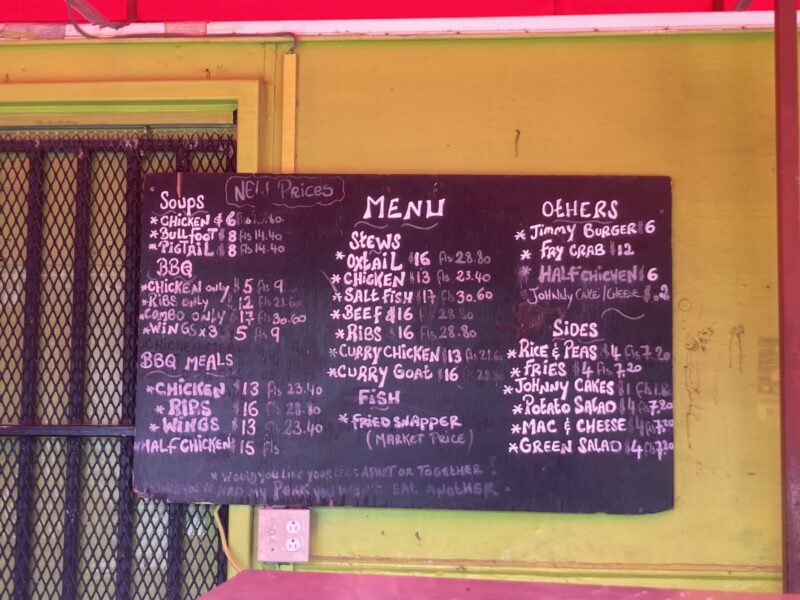 NEW PRICES
Soups
* CHICKEN $ 6 fls 10.80
* BULLFOOT $ 8 fls 14.40
* PIGTAIL $ 8 fls 14.40
BBQ
* CHICKEN ONLY $ 5 fls 9
* RIBS ONLY $ 12 fls 21.60
* COMBO ONLY $ 17 fls 30.60
* WINGS x 3 $ 5 fls 9
BBQ MEALS
* CHICKEN $ 13 fls 23.40
* RIPS $ 16 fls 28.80
* WINGS $ 13 fls 23.40
* HALF CHICKEN $ 15 fls
MENU
STEWS
* OXTAIL $16 fls 28.80
* CHICKEN $ 13 fls 23.40
* SALT FISH $ 17 fls 30.60
* BEEF $ 16 fls 28.80
* RIBS $ 16 fls 28.80
* CURRY CHICKEN $13 fls
* CURRY GOAT $ 16 fls
FISH
* FRIED SNAPPER
(MARKET PRICE)
OTHERS
* JIMMY BURGER $ 6
* FRY CRAB $ 12
* HALF CHICKEN $ 6
* JOHNNY CAKE/CHEESE $
SIDES
* RICE & PEAS $ 4 fls 7.20
* FRIES $ 4 fls 7.20
* JOHNNY CAKES $ 1 fls 1.80
* POTATO SALAD $ 4 fls 7.20
* MAC & CHEESE $ 4 fls 7.20
* GREEN SALAD $ 4 fls 7.20
* WOULD YOU LIKE YOUR LEGS APART OR TOGETHER?
YOU'VE HAD MY PORK YOU WON'T EAT ANOTHER.